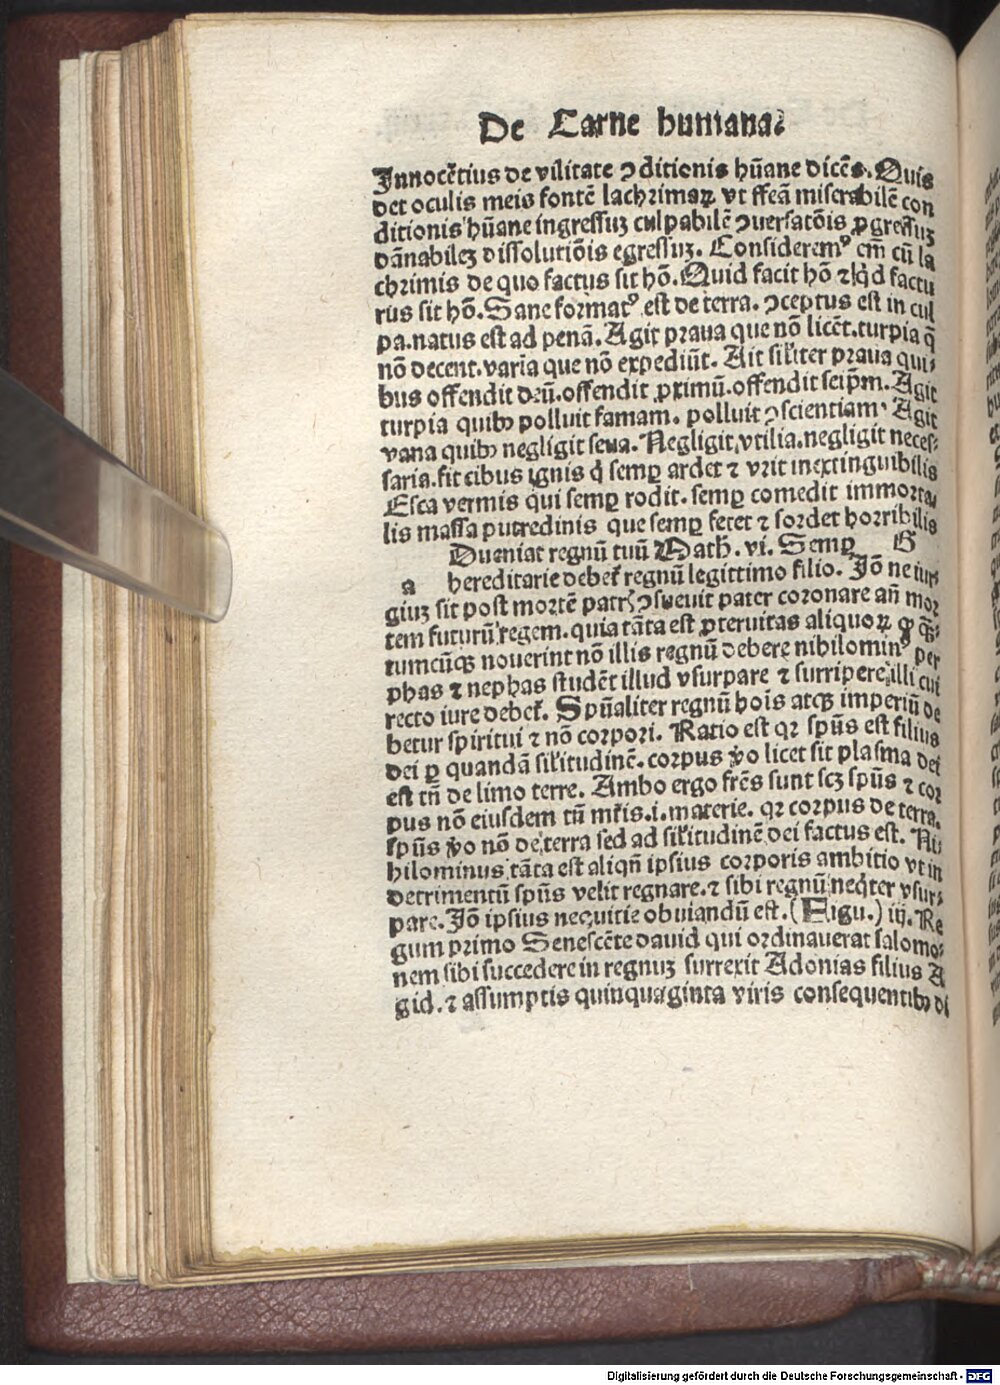 De Carne humana⸫
Innocētius de vilitate ↄditionis hūane dicēs. Quis
det oculis meis fontē lachrimaꝝ vt fleā miserabilē con
ditionis hūane ingressuȝ culpabilē ↄuersatōis ꝓgressuȝ
dānabileȝ dissolutiōis egressuȝ. Consideremꝰ em̄ cū la
chrimis de quo factus sit hō. Quid facit hō ⁊ qͥd factu
rus sit hō. Sane formatꝰ est de terra. ↄceptus est in cul
pa. natus est ad penā. Agit praua que nō licēt. turpia q̄
nō decent. varia que nō expediūt. Ait siłiter praua qui⸗
bus offendit deū. offendit ꝓximū. offendit seip̄m. Agit
turpia quibꝫ polluit famam. polluit ↄscientiam. Agit
vana quibꝫ negligit seua. Negligit vtilia. negligit neces⸗
saria. fit cibus ignis q̇ semꝑ ardet ⁊ vrit inextinguibilis
Esca vermis qui semꝑ rodit. semꝑ comedit immorta⸗
lis massa putredinis que semꝑ fetet ⁊ sordet horribilis
Dueniat regnū tuū Math̄. vi. Semꝑ G
a hereditarie debet᷑ regnū legittimo filio. Jō ne iur⸗
giuȝ sit post mortē patrꝭ ↄsueuit pater coronare añ mor
tem futurū regem. quia tāta est ꝓteruitas aliquoꝝ ꝙ q̄⸗
tumcūqꝫ nouerint nō illis regnū debere nihilominꝰ per
phas ⁊ nephas studēt illud vsurpare ⁊ surripere, illi cui
recto iure debet᷑. Spūaliter regnū hoīs atqꝫ imperiū de
betur spiritui ⁊ nō corpori. Ratio est qꝛ spūs est filius
dei ꝑ quandā siłitudinē. corpus v̊o licet sit plasma dei
est tn̄ de limo terre. Ambo ergo frēs sunt scȝ spūs ⁊ cor
pus nō eiusdem tn̄ mr̄is .i. materie. qꝛ corpus de terra.
spūs v̊o nō de terra sed ad siłitudinē dei factus est. Ni⸗
hilominus tāta est aliqñ ipsius corporis ambitio vt in
detrimentū spūs velit regnare. ⁊ sibi regnū neqͥter vsur⸗
pare. Jō ipsius nequitie obuiandū est. (Figu.) iij. Re
gum primo Senescēte dauid qui ordinauerat salomo⸗
nem sibi succedere in regnuȝ surrexit Adonias filius A
gid. ⁊ assumptis quinquaginta viris consequentibꝫ di
Digitalisierung gefördert durch die Deutsche Forschungsgemeinschaft - DFG